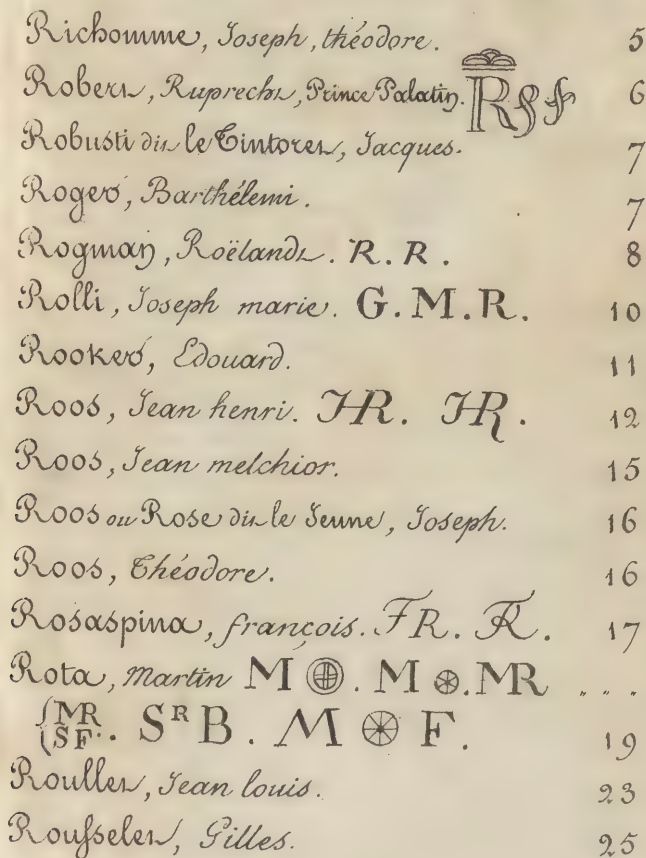 Richomme, Joseph, théodore. 5
Robert, Ruprecht, Prince Palatin. R 6
Robusti dit le Tintoret, Jacques. 7
Roger, Barthélemi. 7
Rogman, Roëlandt. R. R. 8
Rolli, Joseph marie. G. M. R. 10
Rooker, Edouard. 11
Roos, Jean henri. JHR. JHR. 12
Roos, Jean melchior. 15
Roos ou Rose dit le Jeune, Joseph. 16
Roos, Théodore. 16
Rosaspina, françois. FR. FR. 17
Rota, martin M. M. MR ...
{MR SF. SR B. M F. 19
Roullet, Jean louis. 23
Rousselet, Gilles. 25